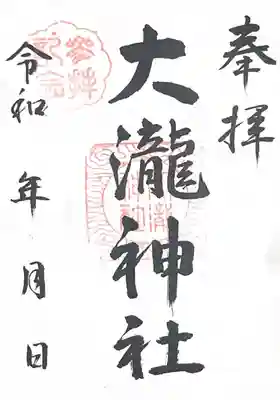 奉拝
大瀧神社
令和 年 月 日
參拝記念